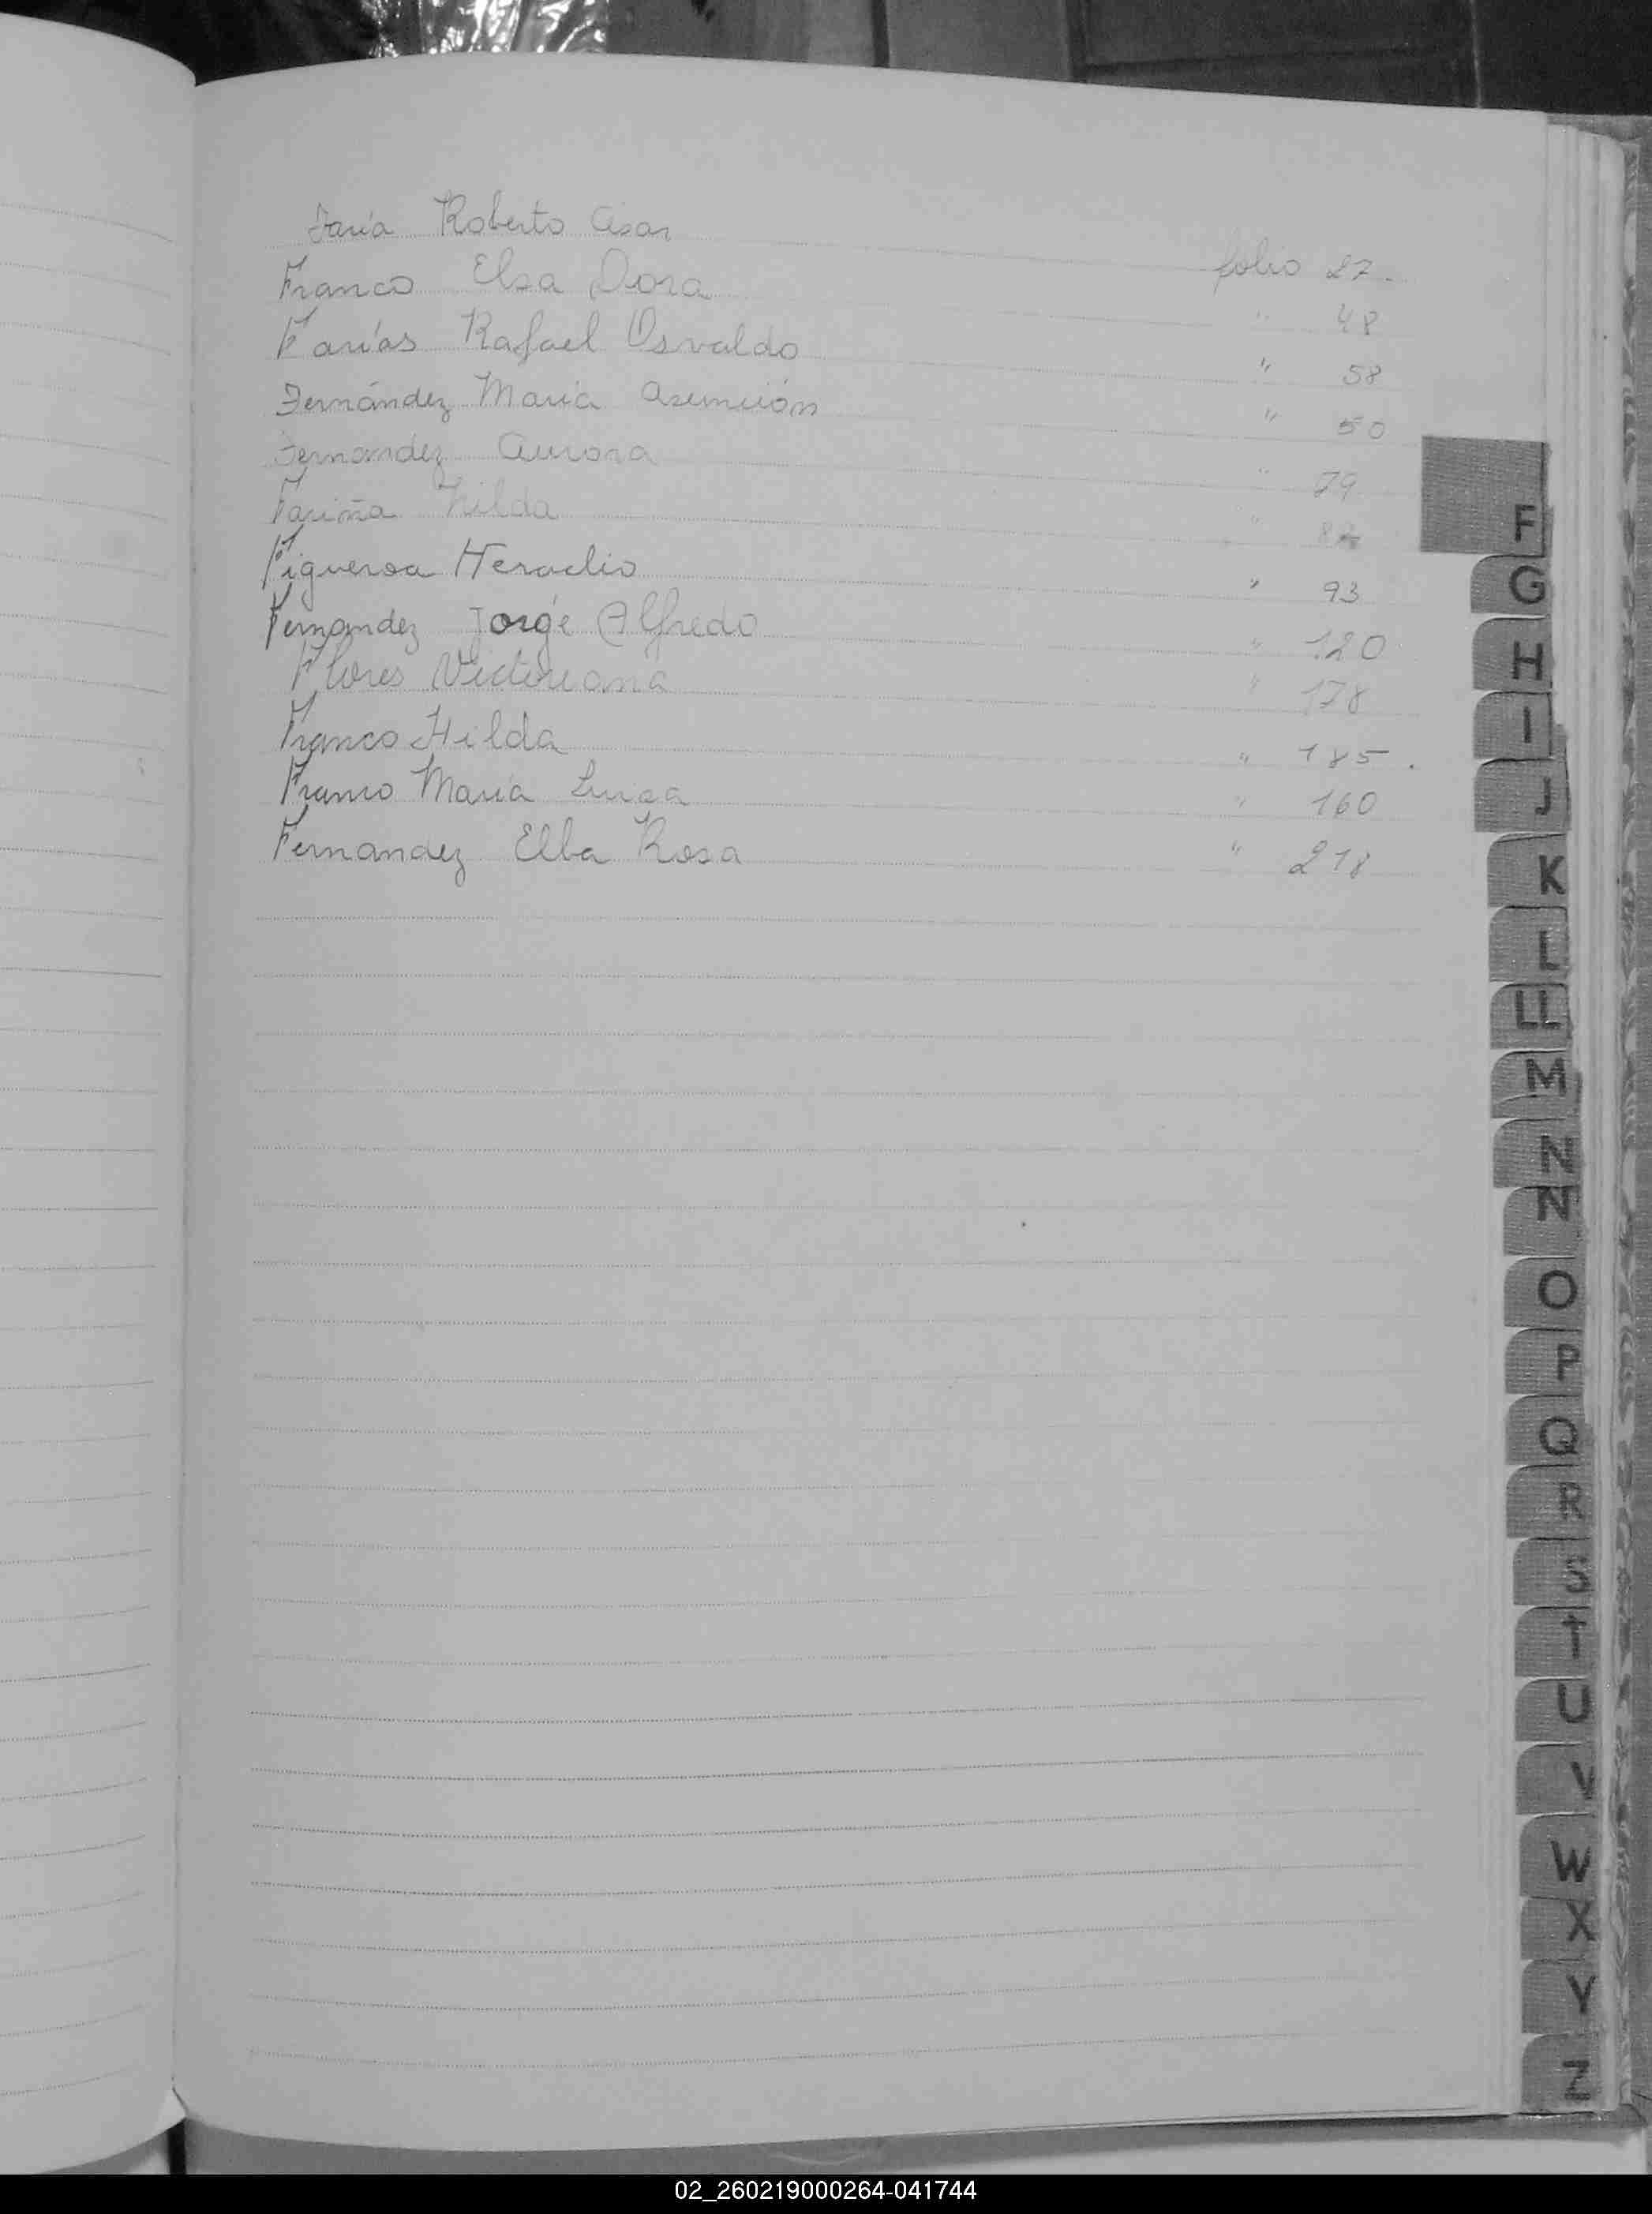 Faria Roberto Cesar folio 27.
Franco Elsa Dora " 48
Farías Rafael Osvaldo " 58
Fernández María Asunción " 50
Fernandez Aurora " 79
Fariña Hilda "
Figueroa Heraclio " 93
Fernandez Jorge Alfredo " 120
Flores Victoriana " 178
Franco Hilda " 185.
Franco María Luisa " 160
Fernandez Elba Rosa " 218
F
G
H
I
J
K
L
LL
M
N
Ñ
O
P
Q
R
S
T
U
V
W
X
Y
Z
02_260219000264-041744